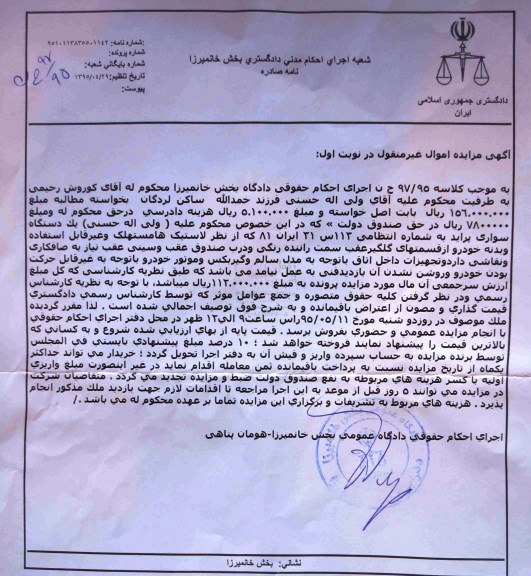 شماره نامه: ۹۵۱۰۱۱۳۸۳۵۵۰۱۱۴۲
شماره پرونده:
شماره بایگانی شعبه:
تاریخ تنظیم: ۱۳۹۵/۰۴/۲۹
پیوست:
شعبه اجرای احکام مدنی دادگستری بخش خانمیرزا
نامه صادره
دادگستری جمهوری اسلامی
ایران
آگهی مزایده اموال غیرمنقول در نوبت اول:
به موجب کلاسه ۹۷/۹۵ ح ن اجرای احکام حقوقی دادگاه بخش خانمیرزا محکوم له آقای کوروش رحیمی
به طرفیت محکوم علیه آقای ولی اله حسنی فرزند حمدالله ساکن لردگان بخواسته مطالبه مبلغ
۱۵۶.۰۰۰.۰۰۰ ریال بابت اصل خواسته و مبلغ ۵.۱۰۰.۰۰۰ ریال هزینه دادرسی درحق محکوم له ومبلغ
۷۸۰۰۰۰۰ ریال در حق صندوق دولت » که در این خصوص محکوم علیه ( ولی اله حسنی) یك دستگاه
سواری پراید به شماره انتظامی ۱۱۳س۳۱ ایران ۸۱ که از نظر لاستیک هامستهلک وغیرقابل استفاده
وبدنه خودرو ازقسمتهای گلگیرعقب سمت راننده رنگی ودرب صندوق عقب وسینی عقب نیاز به صافکاری
ونقاشی داردوتجهیزات داخل اتاق باتوجه به مدل سالم وگیربکس وموتور خودرو باتوجه به غیرقابل حرکت
بودن خودرو وروشن نشدن آن بازدیدفنی به عمل نیامد می باشد که طبق نظریه کارشناسی که کل مبلغ
ارزش سرجمعی آن مال مورد مزایده پرونده به مبلغ ۱۱۲.۰۰۰.۰۰۰ریال میباشد، با توجه به نظریه کارشناس
رسمی ودر نظر گرفتن کلیه حقوق متصوره و جمع عوامل موثر که توسط کارشناس رسمی دادگستری
قیمت گذاری و مصون از اعتراض باقیمانده و به شرح فوق توصیف اجمالی شده است . لذا مقرر گردیده
ملك موصوف در روزدو شنبه مورخ ۹۵/۰۵/۱۱راس ساعت۹ الی۱۲ ظهر در محل دفتر اجرای احکام حقوقی
با انجام مزایده عمومی و حضوری بفروش برسد . قیمت پایه از بهای ارزیابی شده شروع و به کسانی که
بالاترین قیمت را پیشنهاد نمایند فروخته خواهد شد ؛ ۱۰ درصد مبلغ پیشنهادی بایستی فی المجلس
توسط برنده مزایده به حساب سپرده واریز و فیش آن به دفتر اجرا تحویل گردد ؛ خریدار می تواند حداکثر
یکماه از تاریخ مزایده نسبت به پرداخت باقیمانده ثمن معامله اقدام نماید در غیر اینصورت مبلغ واریزی
اولیه با کسر هزینه های مربوطه به نفع صندوق دولت ضبط و مزایده تجدید می گردد . متقاضیان شرکت
در مزایده می توانند ۵ روز قبل از موعد به این اجرا مراجعه تا اقدامات لازم جهت بازدید ملك مذکور انجام
پذیرد . هزینه های مربوط به تشریفات و برگزاری این مزایده تماما بر عهده محکوم له می باشد ./
اجرای احکام حقوقی دادگاه عمومی بخش خانمیرزا-هومان پناهی
نشانی: بخش خانمیرزا